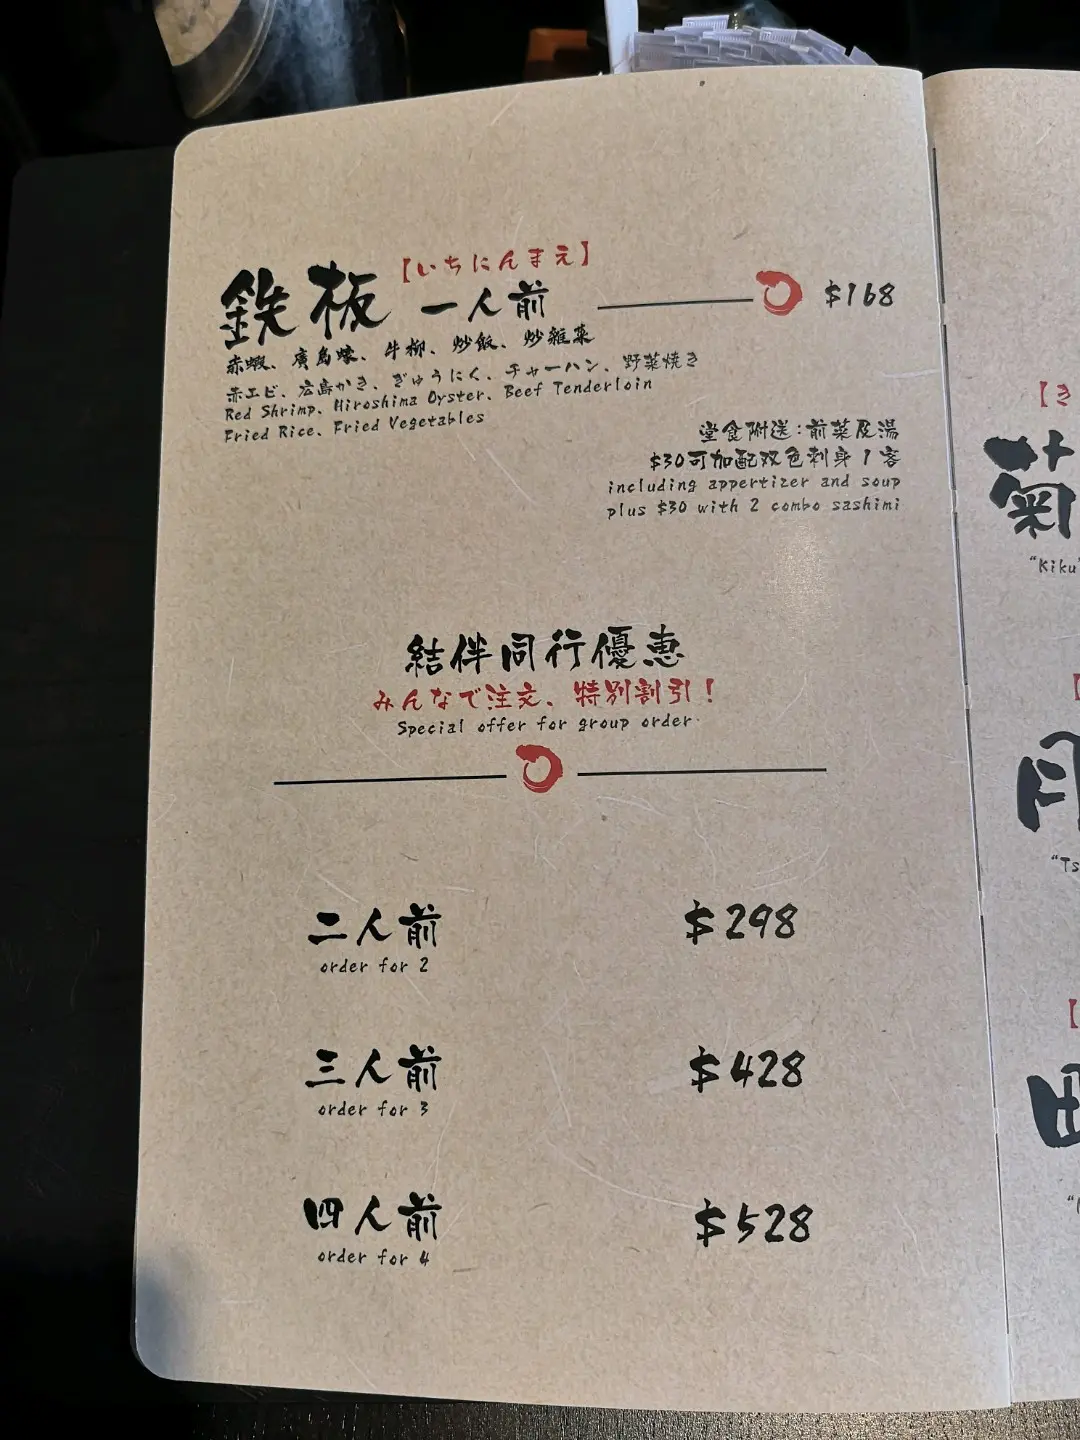 【いちにんまえ】
鉄板 一人前 $168
赤蝦、廣島蠔、牛柳、炒飯、炒雜菜
赤エビ、広島かき、ぎゅうにく、チャーハン、野菜焼き
Red Shrimp、Hiroshima Oyster、Beef Tenderloin
Fried Rice、Fried Vegetables
堂食附送:前菜及湯
$30可加配双色刺身1客
including appertizer and soup
plus $30 with 2 combo sashimi
結伴同行優惠
みんなで注文、特別割引!
Special offer for group order
二人前 $298
order for 2
三人前 $428
order for 3
四人前 $528
order for 4
【き
菊
"Kiku"
月
"Ts